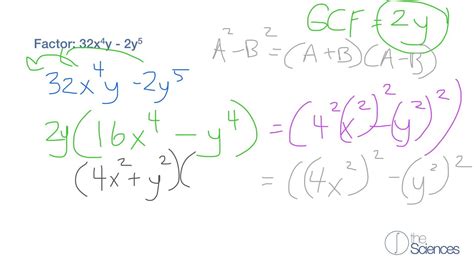 GCF = 2y
Factor: 32x⁴y - 2y⁵
A² - B² = (A + B)(A - B)
32x⁴y - 2y⁵
2y(16x⁴ - y⁴) = (4²(x²)² - (y²)²)
(4x² + y²)( = ((4x²)² - (y²)²)
the Sciences